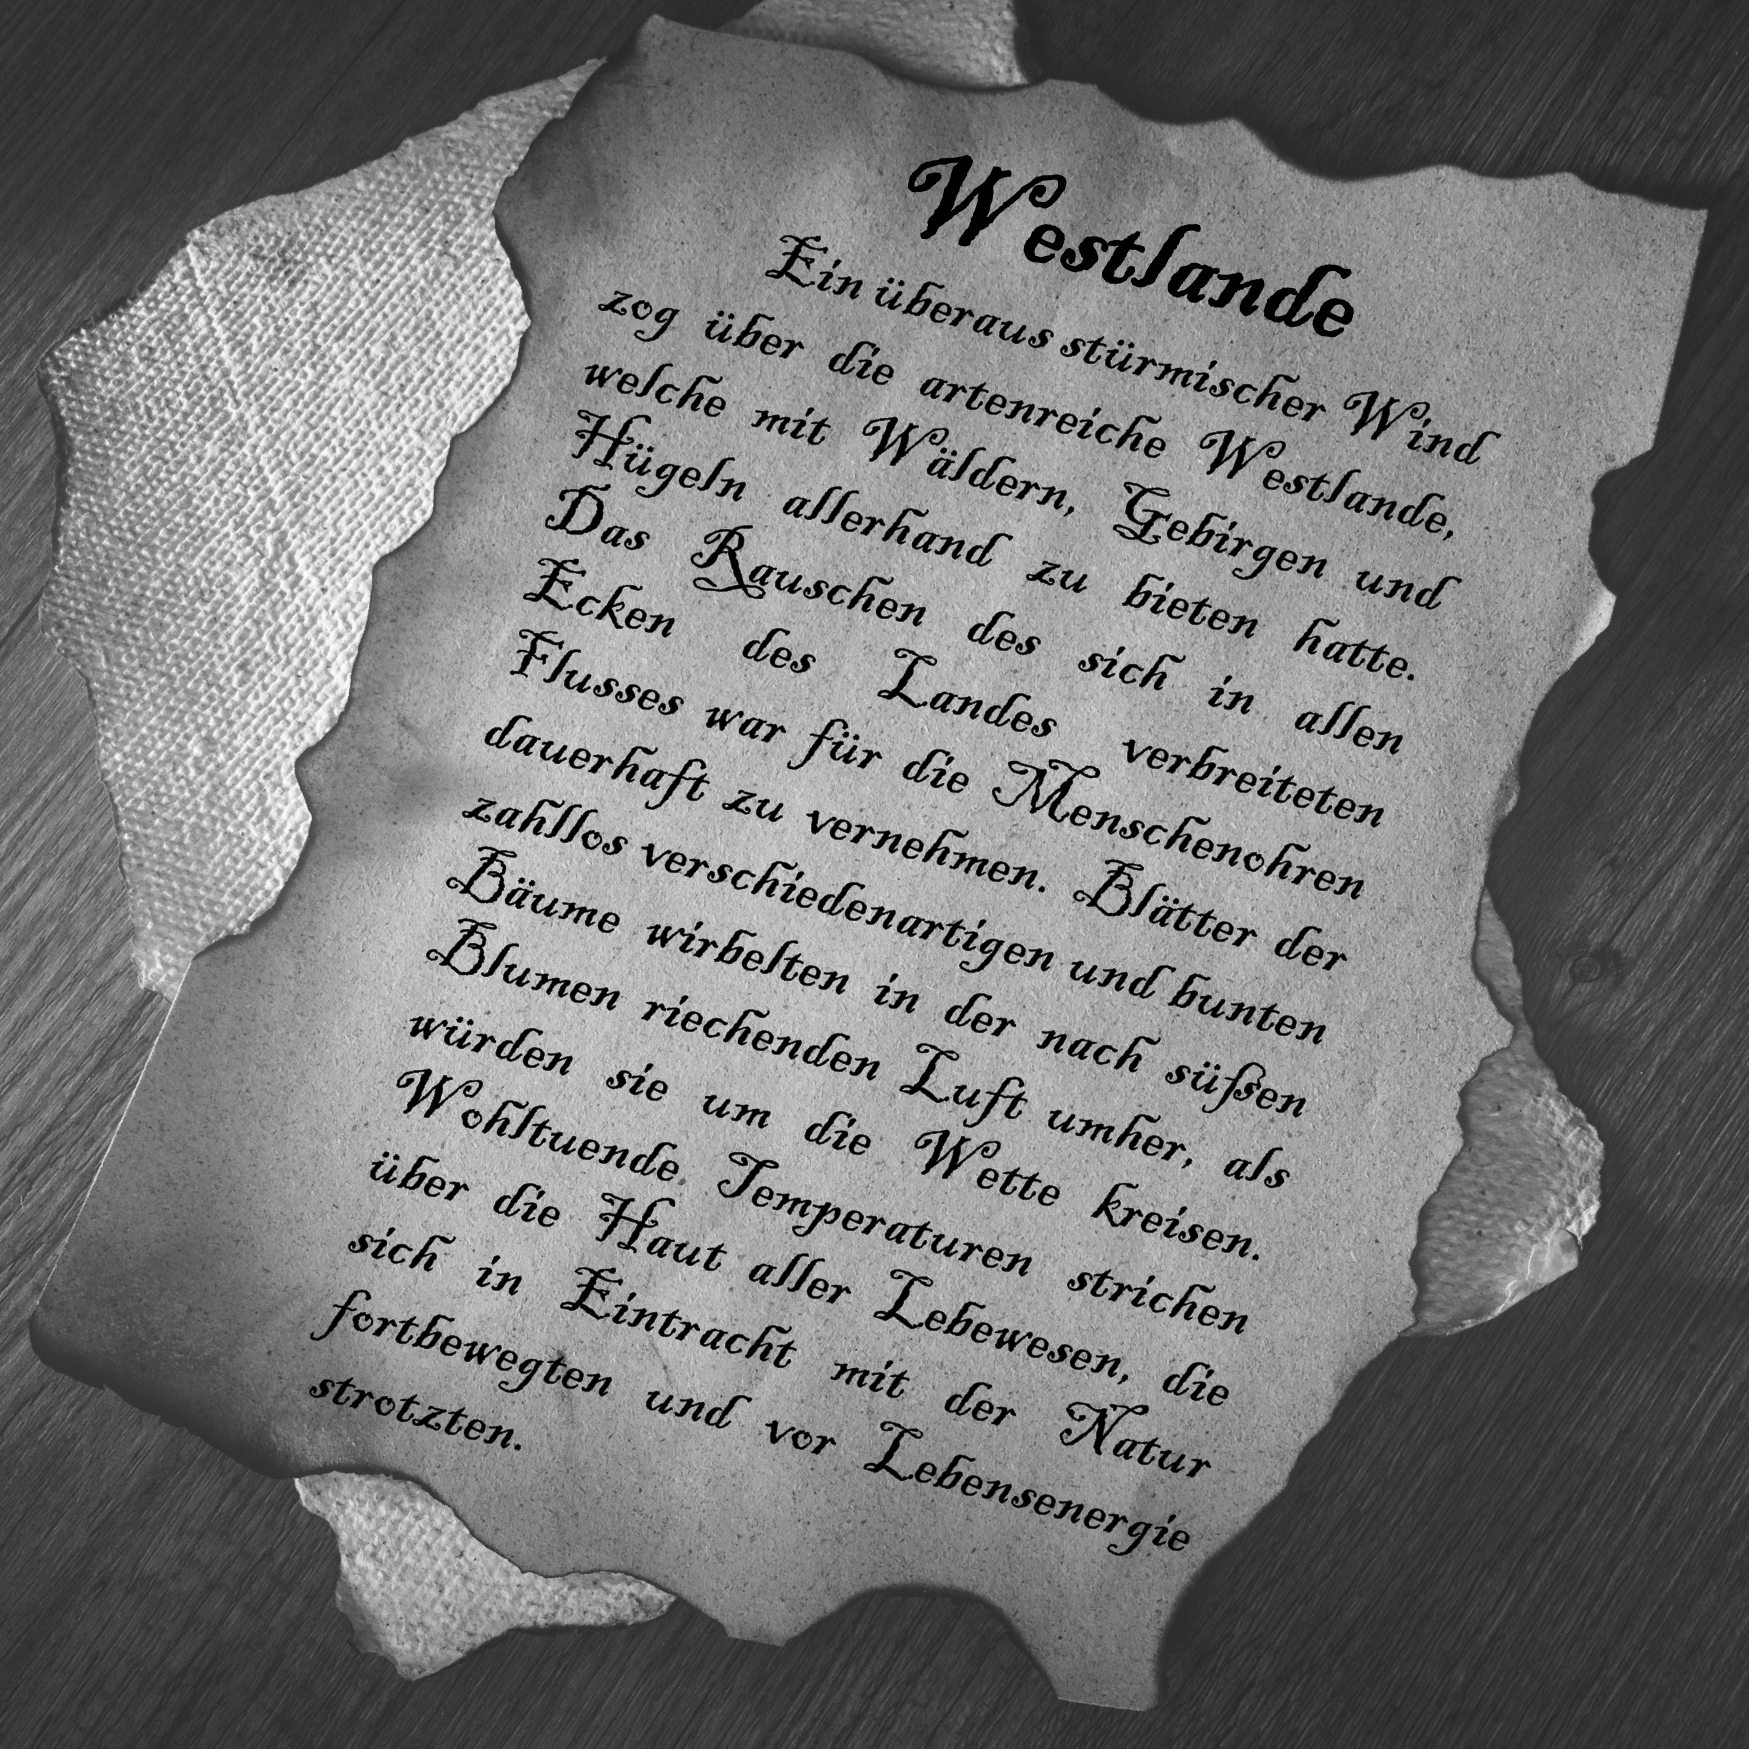 Westlande
Ein überaus stürmischer Wind
zog über die artenreiche Westlande,
welche mit Wäldern, Gebirgen und
Hügeln allerhand zu bieten hatte.
Das Rauschen des sich in allen
Ecken des Landes verbreiteten
Flusses war für die Menschenohren
dauerhaft zu vernehmen. Blätter der
zahllos verschiedenartigen und bunten
Bäume wirbelten in der nach süßen
Blumen riechenden Luft umher, als
würden sie um die Wette kreisen.
Wohltuende Temperaturen strichen
über die Haut aller Lebewesen, die
sich in Eintracht mit der Natur
fortbewegten und vor Lebensenergie
strotzten.